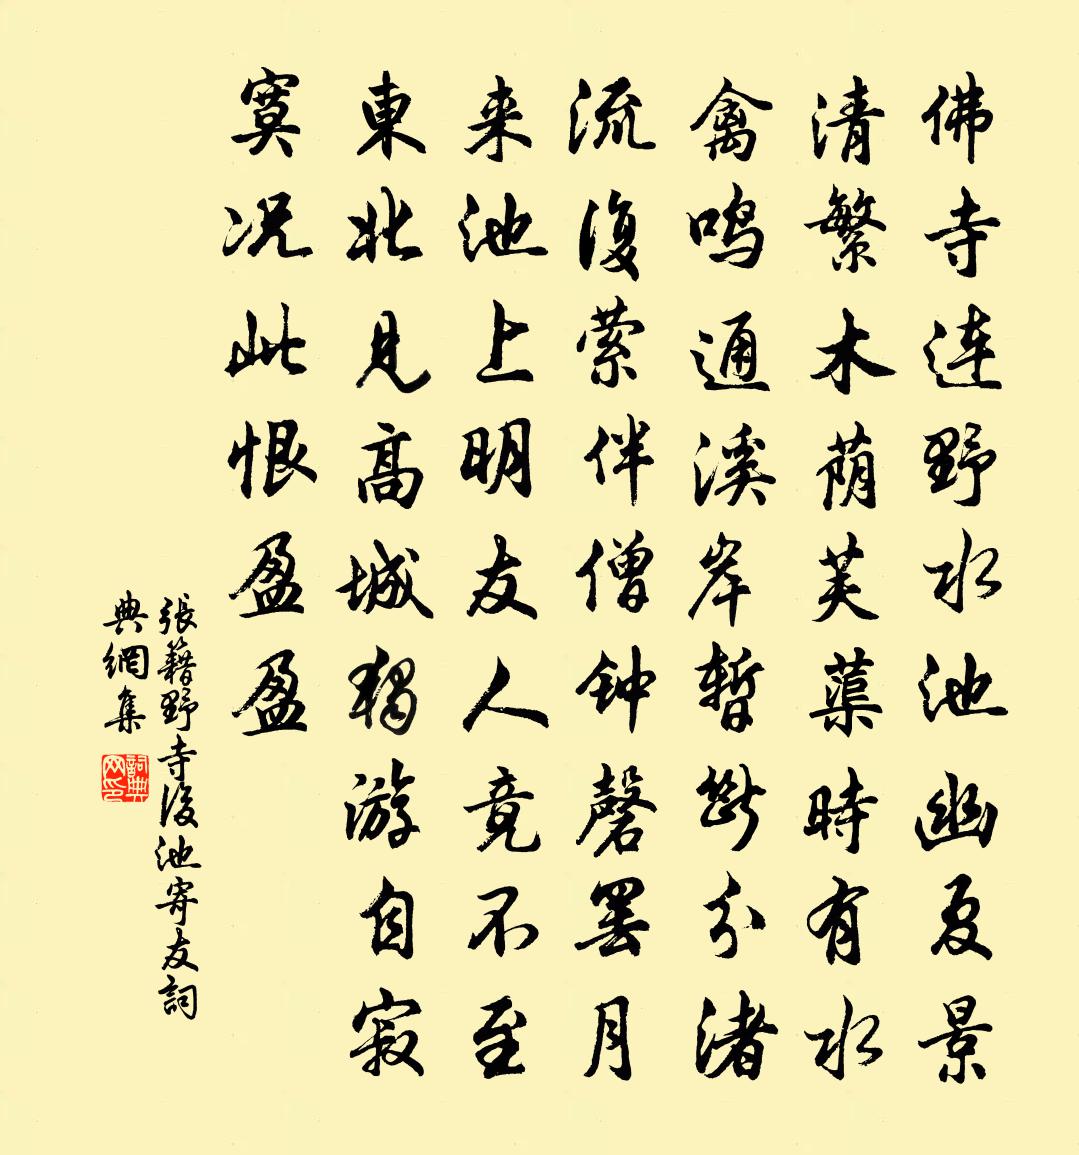 佛寺连野水池幽夏景
清繁木荫芙蕖時有水
禽鸣通溪岸暫断分渚
流復萦伴僧钟磬罢月
来池上明友人竟不至
東北見高城独游自寂
寞况此恨盈盈
張籍野寺後池寄友詞
典網集
詞典网印